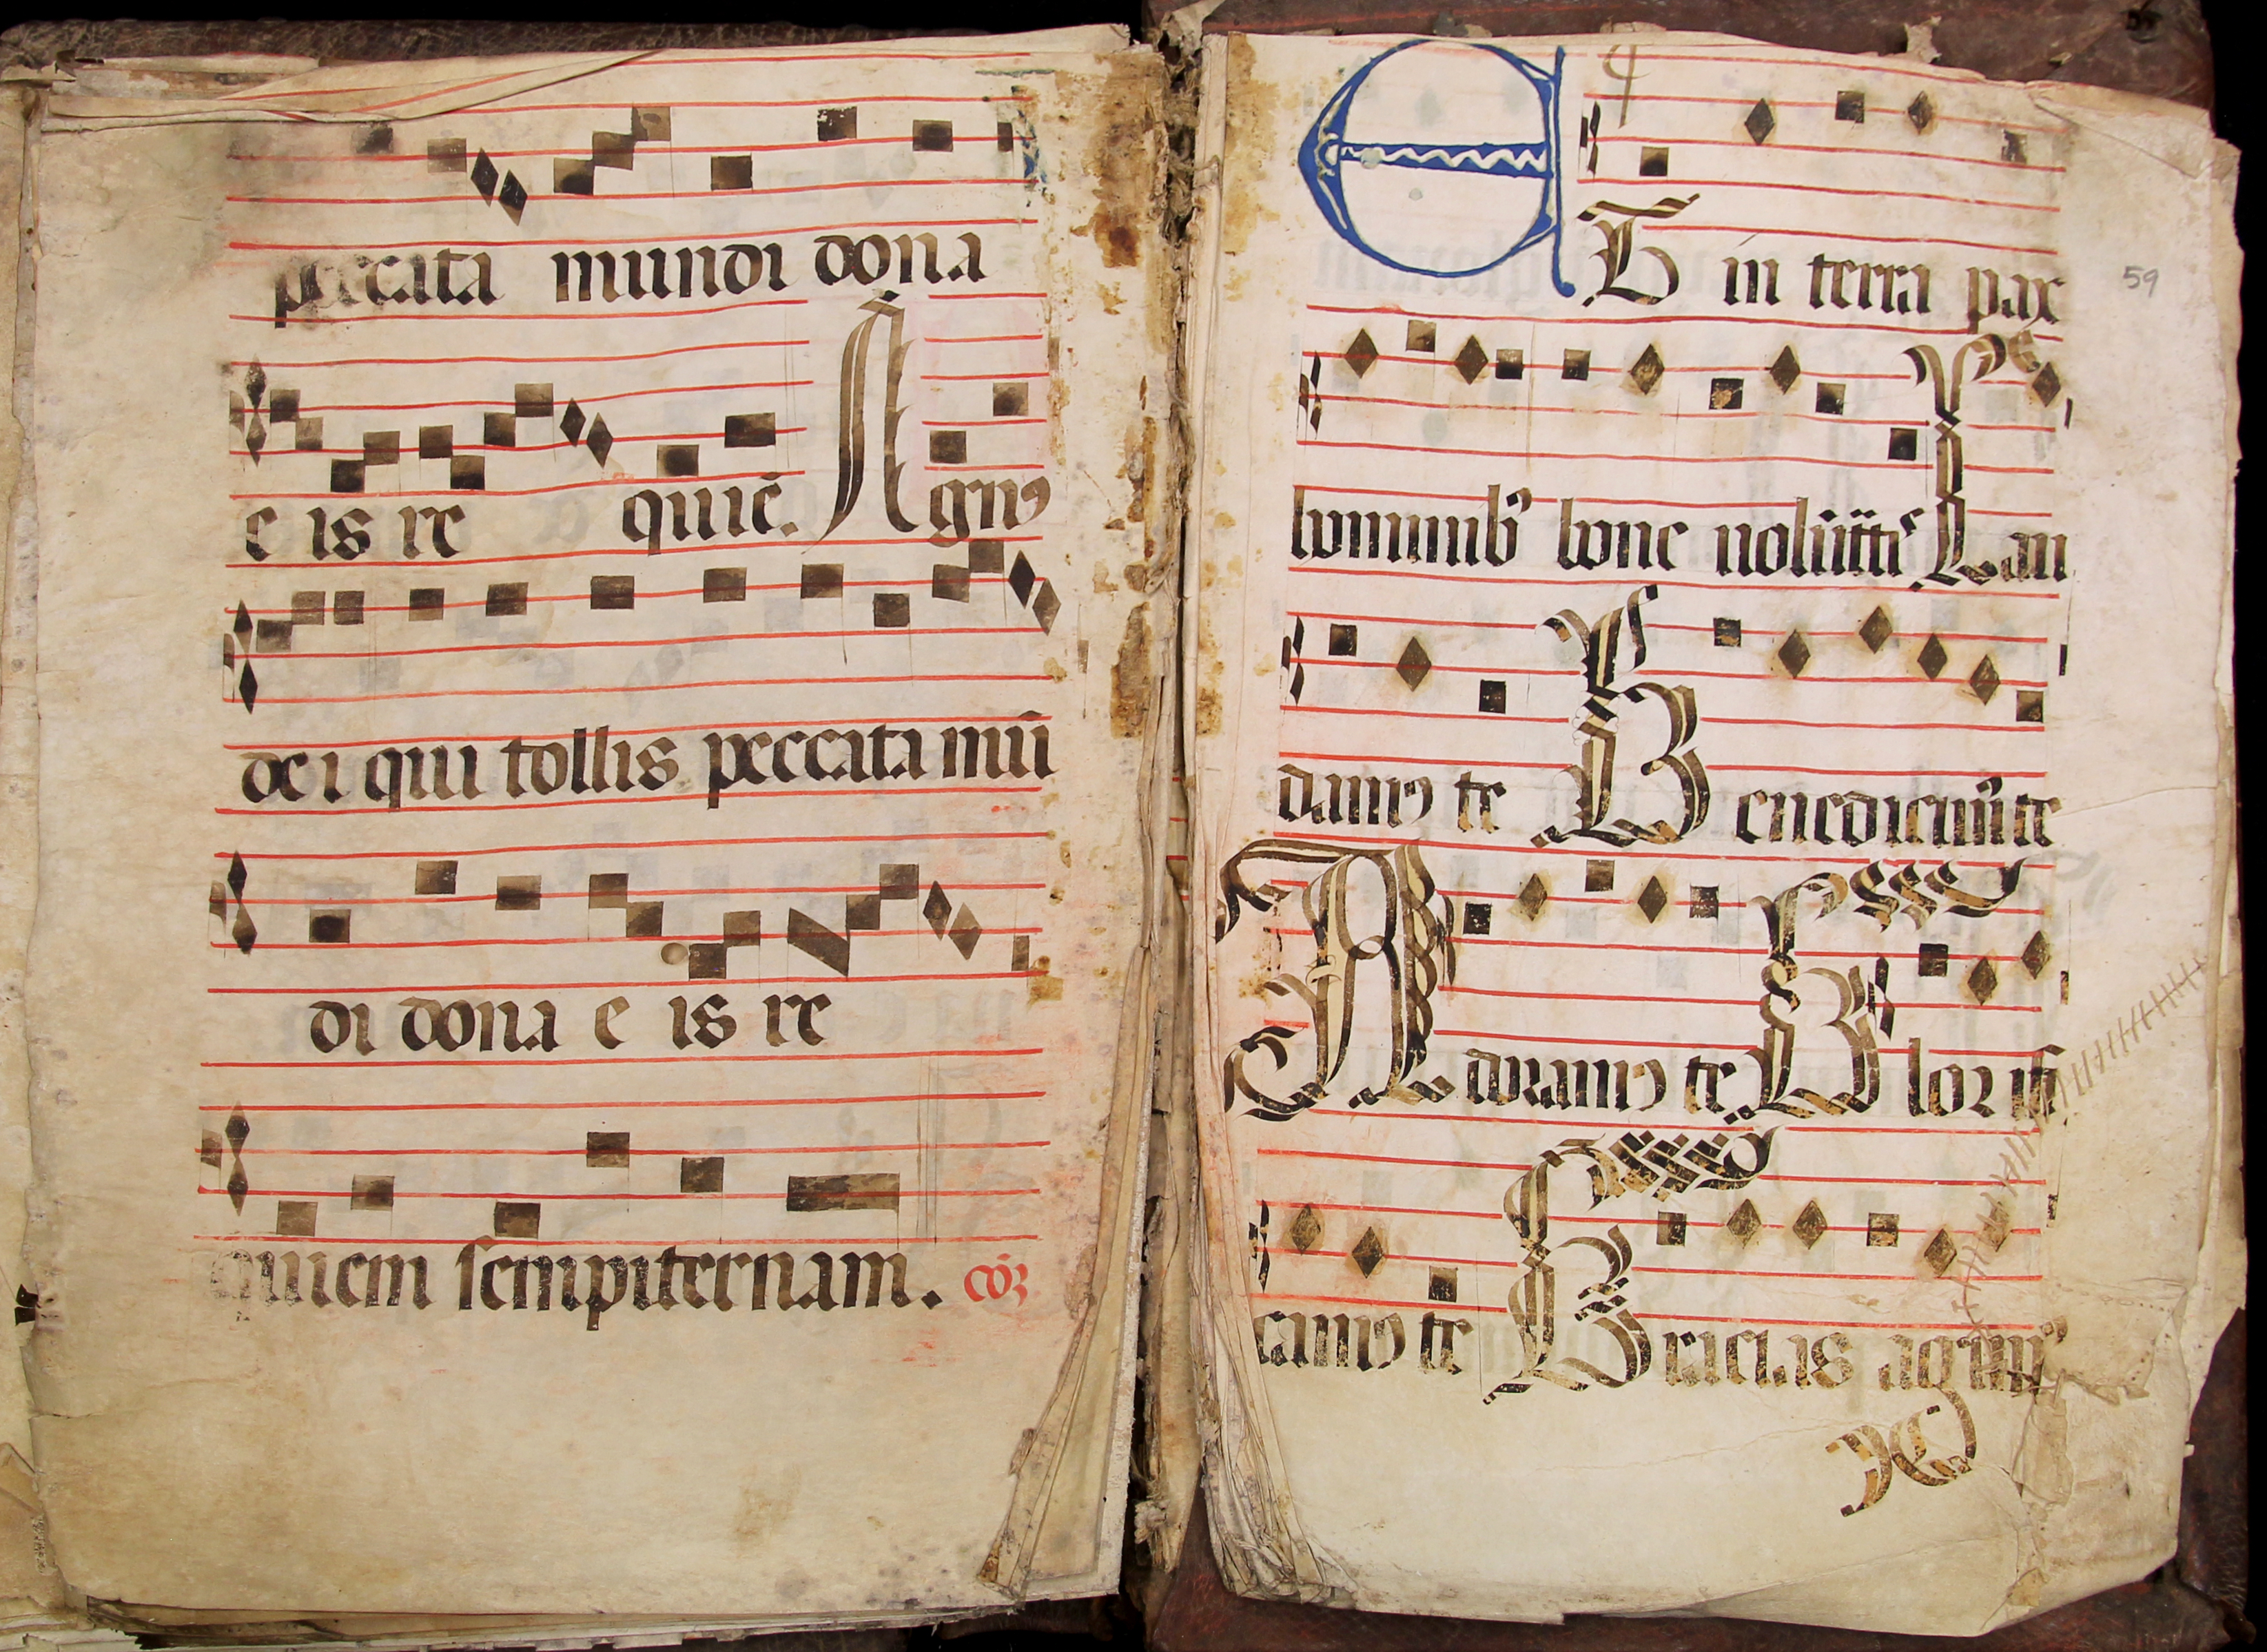 peccata mundi dona
e is re quiē. Agnꝰ
de i qui tollis peccata mū
di dona e is re
quiem sempiternam. cōꝛ
Et in terra pax
59
hominibꝰ bone
Lau
damꝰ te Benedicimꝰ te
Adoramꝰ te Gloꝛ ifi
camꝰ te Gracias agimꝰ